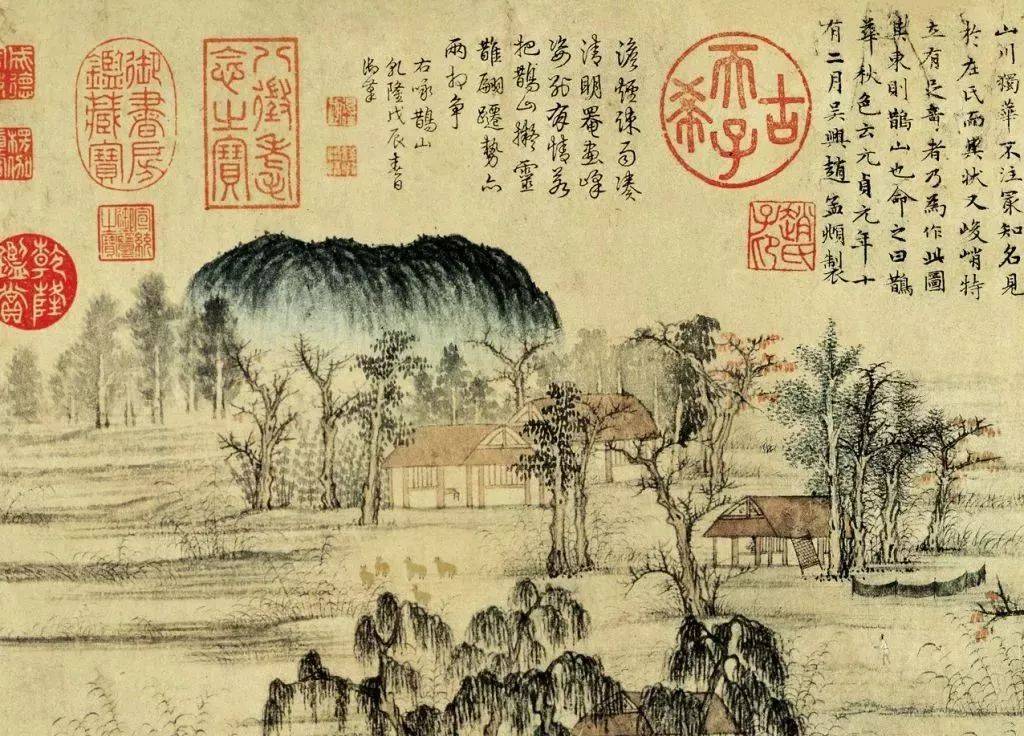 山川獨華不注冣知名見
於左氏而其狀又峻峭特
立有足奇者乃為作此圖
其東則鵲山也命之曰鵲
華秋色云元貞元年十
有二月吳興趙孟頫製
趙氏子印
古希天子
澹煙疎雨湊
清明罨畫峰
姿別有情若
把鵲山擬靈
鵲翩躚勢亦
兩相爭
右咏鵲山
乾隆戊辰春日
御筆
八徵耄念之寶
御書房鑑藏寶
宣統御覽之寶
成德
楞伽
乾隆鑑賞